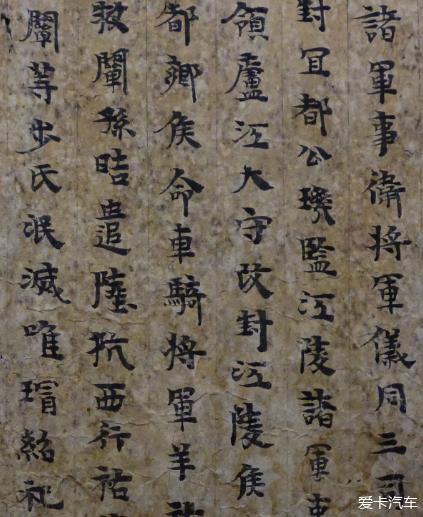 諸軍事衛將軍儀同三司
封冝都公璣監江陵諸軍事
領廬江大守改封江陵侯
都鄉侯命車騎將軍羊祜
救闡孫晧遣陸抗西行祜
闡等步氏泯滅唯紹祀
爱卡汽车